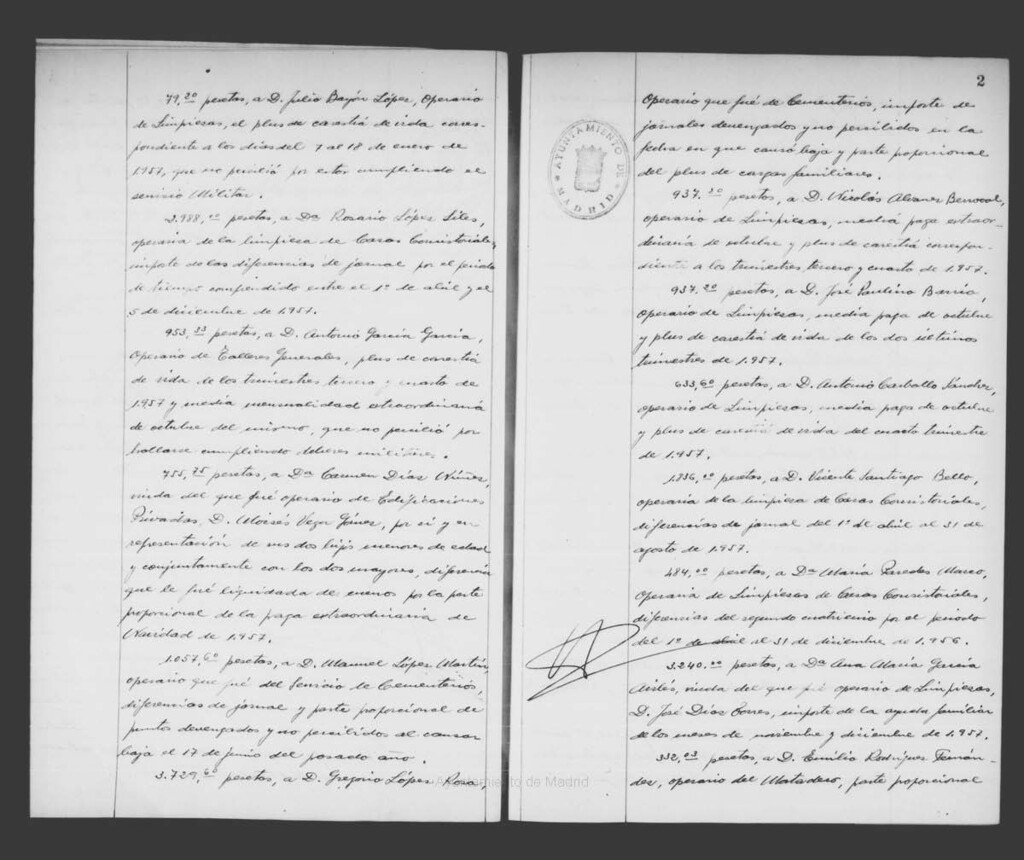 79,20 pesetas, a D. Julio Bayón López, Operario
de Limpiezas, el plus de carestía de vida corres-
pondiente a los dias del 7 al 18 de enero de
1.957, que no percibió por estar cumpliendo el
servicio Militar.
3.988,00 pesetas, a Dª Rosario López Siles,
operaria de la limpieza de Casas Consistoriales,
importe de las diferencias de jornal por el período
de tiempo comprendido entre el 1º de abril y el
5 de diciembre de 1.957.
953,33 pesetas, a D. Antonio García García,
Operario de Talleres Generales, plus de carestía
de vida de los trimestres tercero y cuarto de
1.957 y media mensualidad extraordinaria
de octubre del mismo, que no percibió por
hallarse cumpliendo deberes militares.
755,75 pesetas, a Dª Carmen Díaz Núñez,
viuda del que fué operario de Edificaciones
Privadas, D. Moisés Vega Gómez, por sí y en
representación de sus dos hijos menores de edad
y conjuntamente con los dos mayores, diferencia
que le fué liquidada de menos por la parte
proporcional de la paga extraordinaria de
Navidad de 1.957.
1.057,60 pesetas, a D. Manuel López Martín,
operario que fué del Servicio de Cementerios,
diferencias de jornal y parte proporcional de
puntos devengados y no percibidos al causar
baja el 17 de junio del pasado año.
3.729,60 pesetas, a D. Gregorio López Rosa,
Ayuntamiento de Madrid
2
Operario que fué de Cementerios, importe de
jornales devengados y no percibidos en la
fecha en que causó baja y parte proporcional
del plus de cargas familiares.
AYUNTAMIENTO DE MADRID
937,20 pesetas, a D. Nicolás Alvarez Berrocal,
operario de Limpiezas, media paga extraor-
dinaria de octubre y plus de carestía correspon-
diente a los trimestres, tercero y cuarto de 1.957.
937,20 pesetas, a D. José Paulino Barrio,
Operario de Limpiezas, media paga de octubre
y plus de carestía de vida de los dos últimos
trimestres de 1.957.
633,60 pesetas, a D. Antonio Carballo Sánchez,
operario de Limpiezas, media paga de octubre
y plus de carestía de vida del cuarto trimestre
de 1.957.
1.836,00 pesetas, a D. Vicente Santiago Bello,
operario de la limpieza de Casas Consistoriales,
diferencias de jornal del 1º de abril al 31 de
agosto de 1.957.
484,00 pesetas, a Dª María Paredes Marco,
Operaria de Limpiezas de Casas Consistoriales,
diferencias del segundo cuatrienio por el período
del 1º de abril al 31 de diciembre de 1.956.
3.240,00 pesetas, a Dª Ana María García
viuda del que fué operario de Limpiezas,
D. José Díaz Torres, importe de la ayuda familiar
de los meses de noviembre y diciembre de 1.957.
332,03 pesetas, a D. Emilio Rodríguez Fernán-
dez, operario del Matadero, parte proporcional